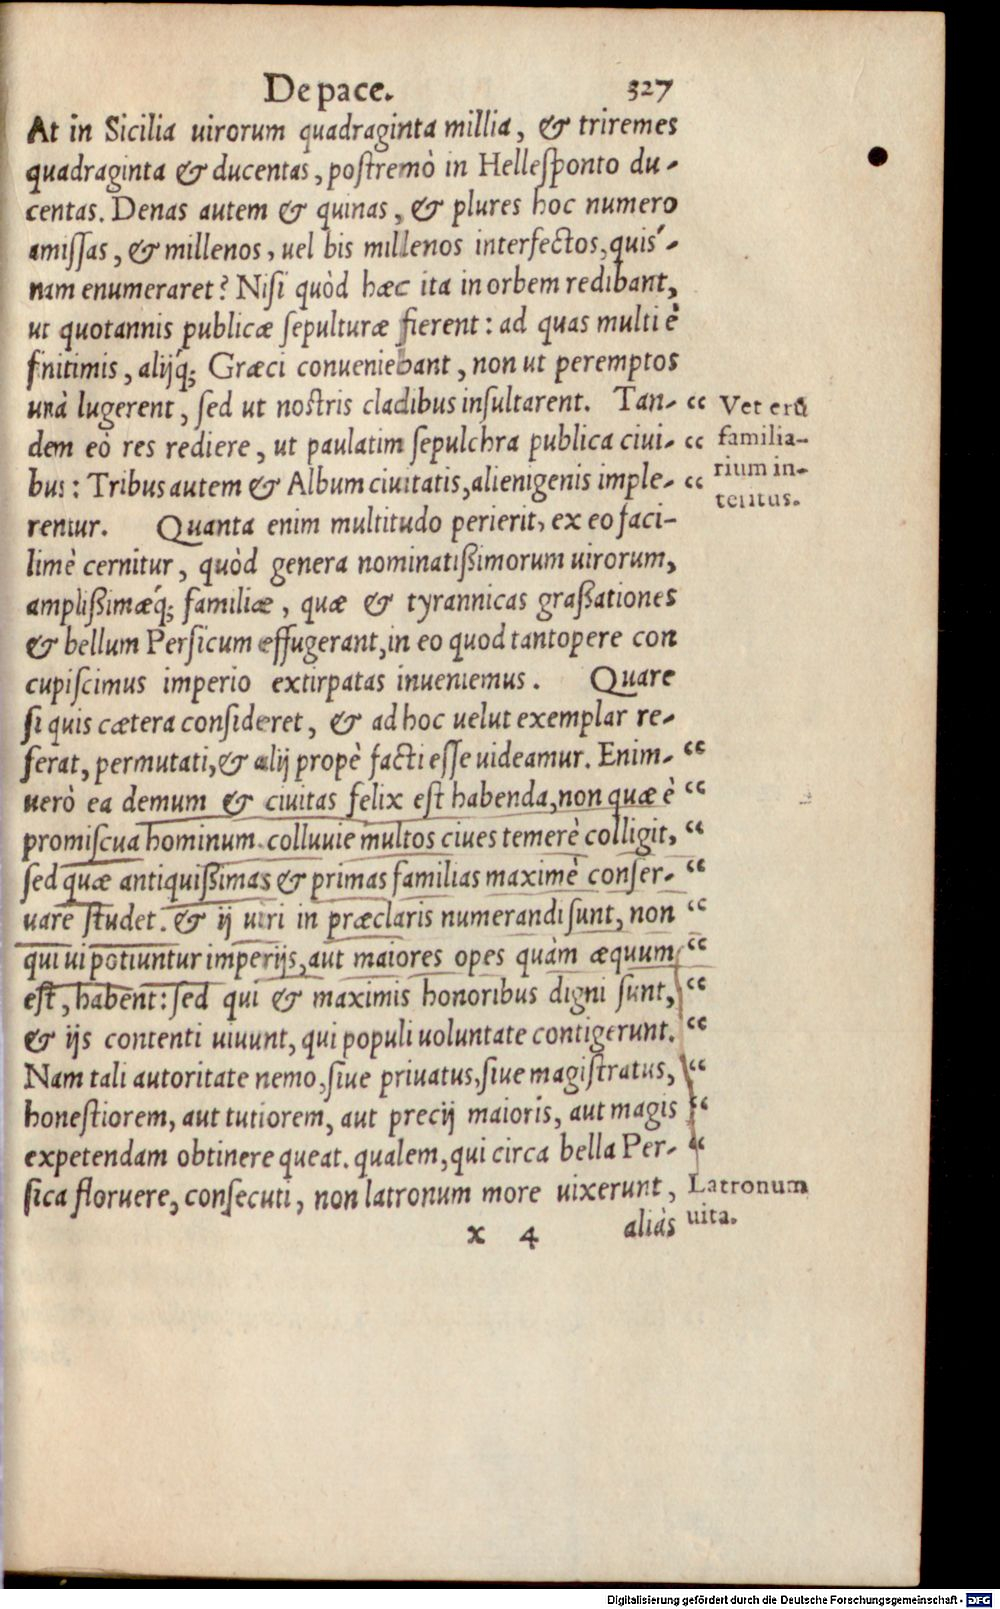 De pace. 327
At in Sicilia uirorum quadraginta millia, & triremes
quadraginta & ducentas, postremò in Hellesponto du-
centas. Denas autem & quinas, & plures hoc numero
amissas, & millenos, uel bis millenos interfectos, quis-
nam enumeraret? Nisi quòd hæc ita in orbem redibant,
ut quotannis publicæ sepulturæ fierent: ad quas multi è
finitimis, alijq́; Græci conueniebant, non ut peremptos
unà lugerent, sed ut nostris cladibus insultarent. Tan- “
dem eò res rediere, ut paulatim sepulchra publica ciui- “
bus: Tribus autem & Album ciuitatis, alienigenis imple- “
rentur. Quanta enim multitudo perierit, ex eo faci-
limè cernitur, quòd genera nominatißimorum uirorum,
amplißimæq́; familiæ, quæ & tyrannicas graßationes
& bellum Persicum effugerant, in eo quod tantopere con
cupiscimus imperio extirpatas inueniemus. Quare
si quis cætera consideret, & ad hoc uelut exemplar re-
ferat, permutati, & alij propè facti esse uideamur. Enim- “
uerò ea demum & ciuitas felix est habenda, non quæ è “
promiscua hominum colluuie multos ciues temerè colligit, “
sed quæ antiquißimas & primas familias maximè conser- “
uare studet. & ij uiri in præclaris numerandi sunt, non “
qui ui potiuntur imperijs, aut maiores opes quàm æquum “
est, habent: sed qui & maximis honoribus digni sunt, “
& ijs contenti uiuunt, qui populi uoluntate contigerunt. “
Nam tali autoritate nemo, siue priuatus, siue magistratus, “
honestiorem, aut tutiorem, aut precij maioris, aut magis “
expetendam obtinere queat. qualem, qui circa bella Per- “
sica floruere, consecuti, non latronum more uixerunt,
x 4 aliàs
Veterū
familia-
rium in-
teritus.
Latronum
uita.
Digitalisierung gefördert durch die Deutsche Forschungsgemeinschaft - DFG